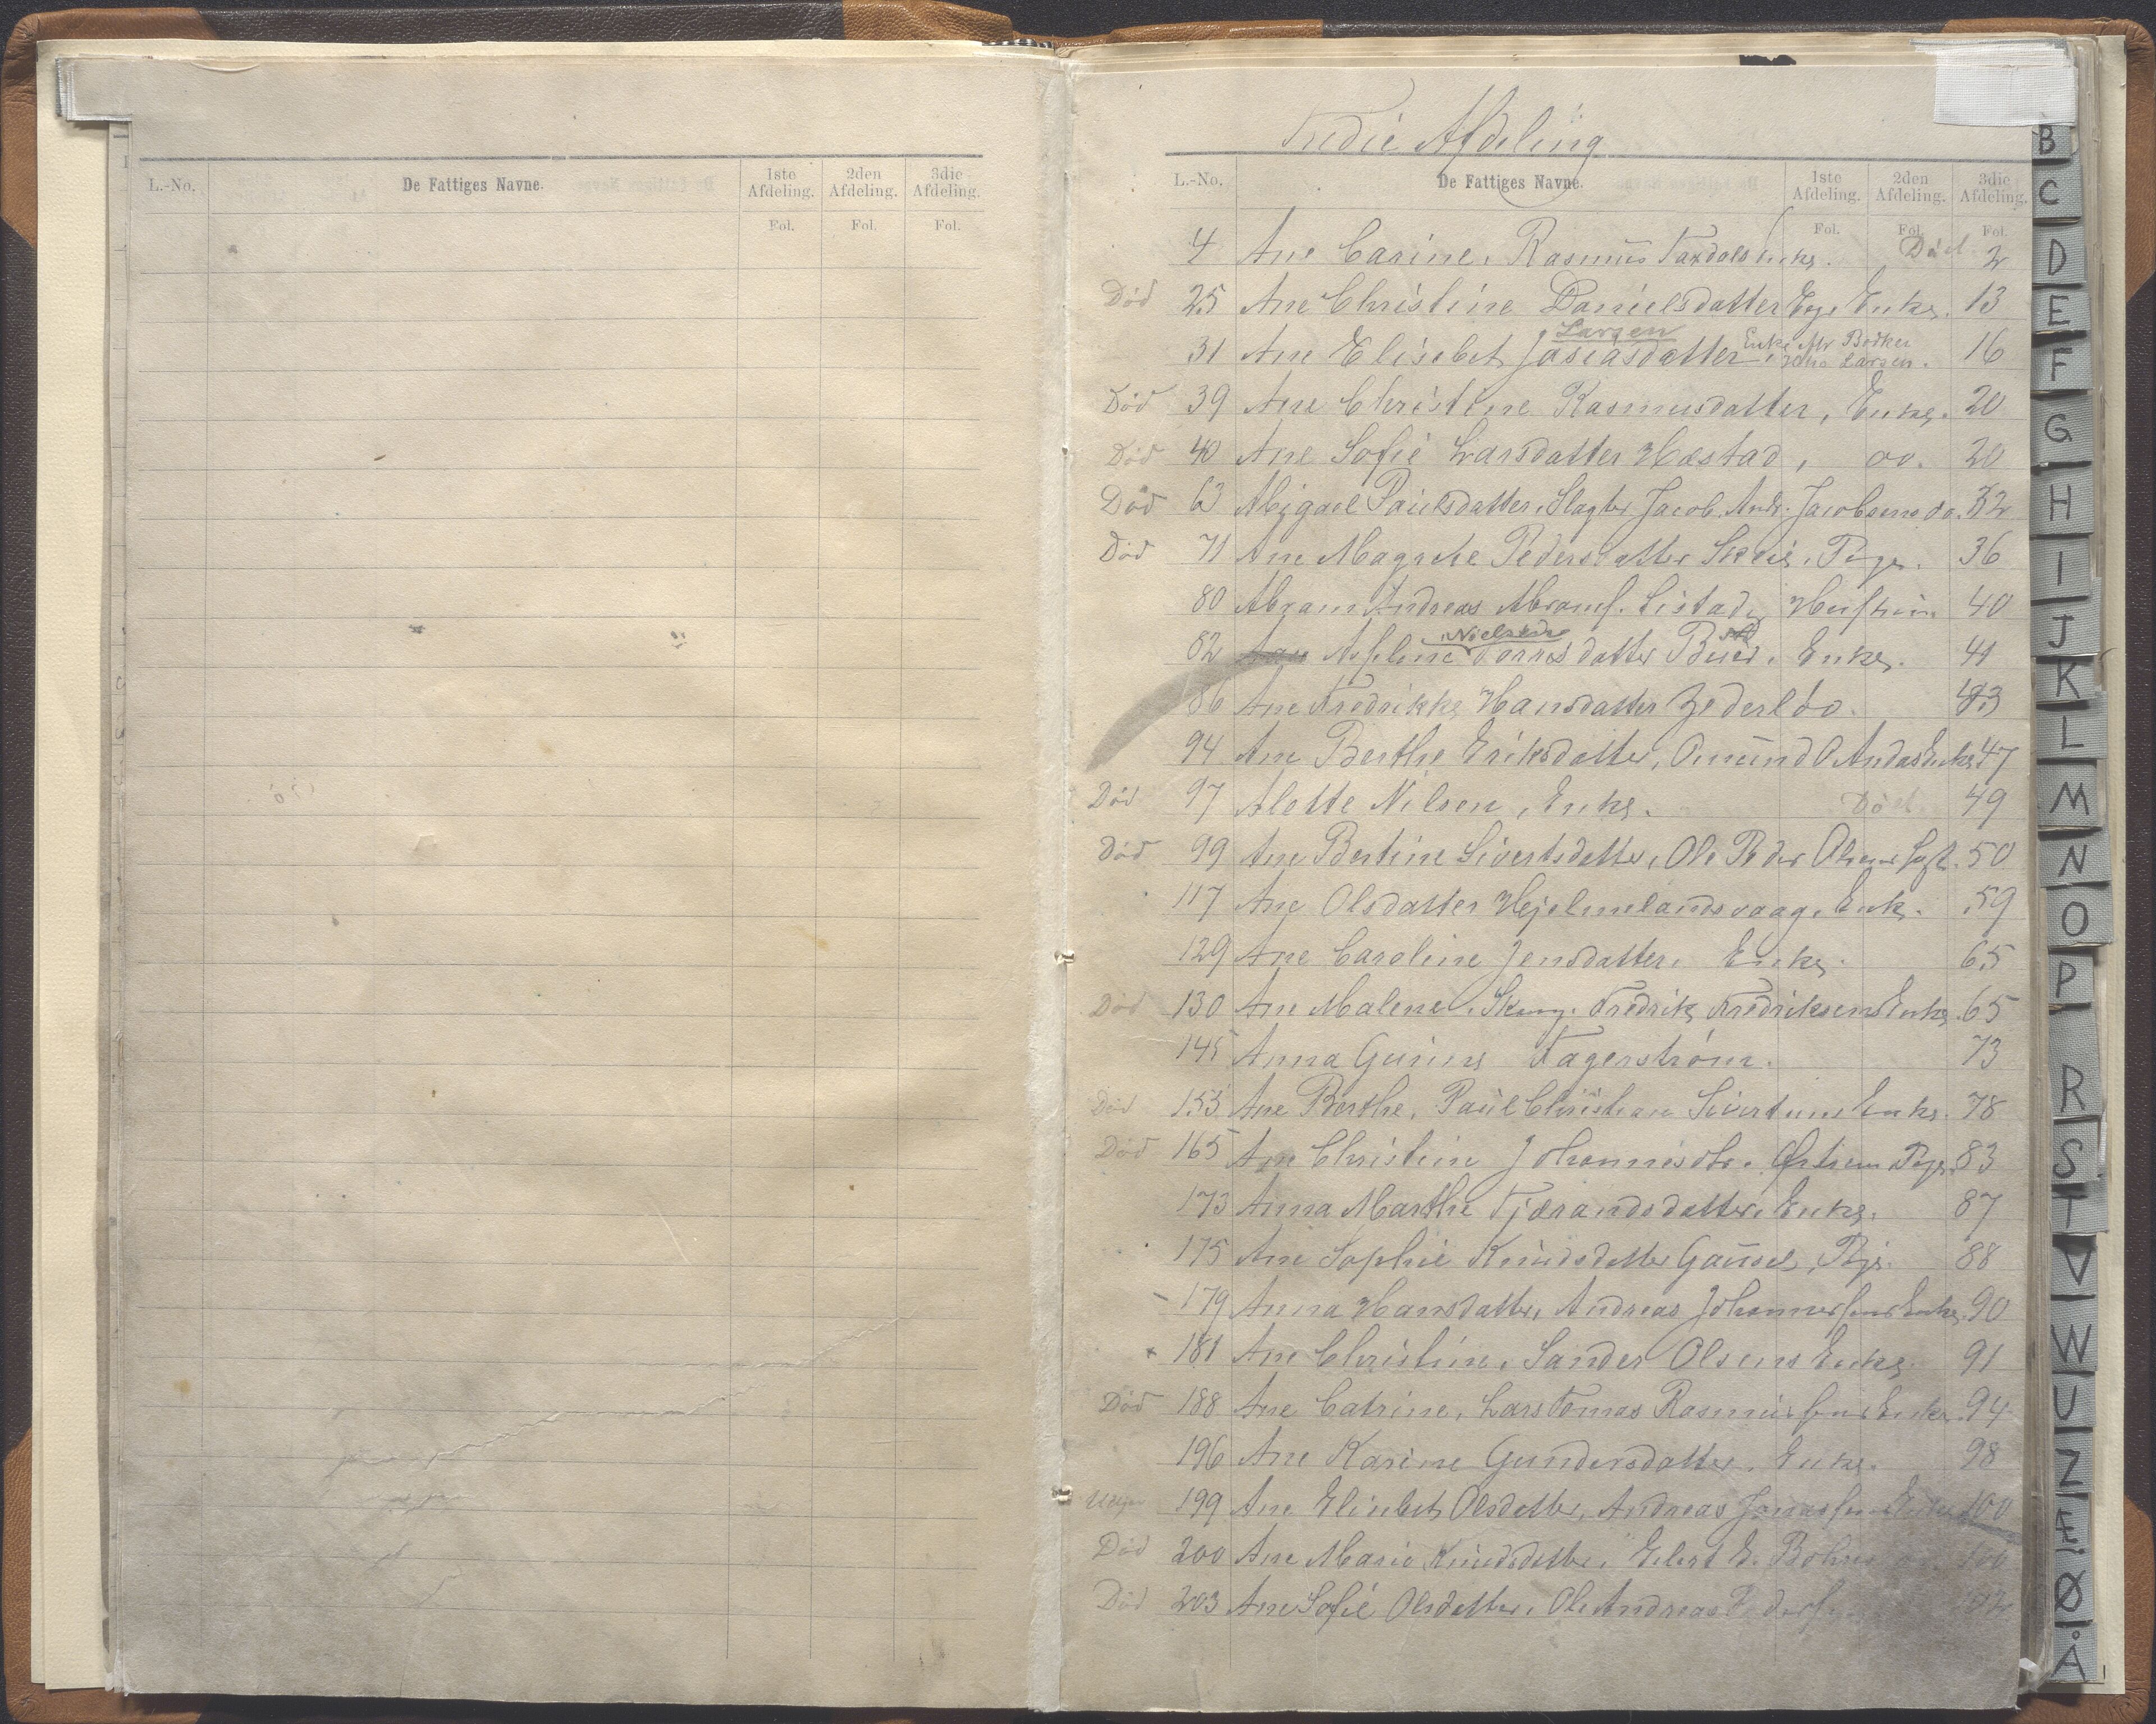 L.-No. De Fattiges Navne. 1ste Afdeling. 2den Afdeling. 3die Afdeling.
Fol. Fol. Fol.
Tredie Afdeling
L.-No. De Fattiges Navne. 1ste Afdeling. 2den Afdeling. 3die Afdeling.
Fol. Fol. Fol.
4 Ane Carine, Rasmus Taxdals Enke. Død 2
Død 25 Ane Christine Danielsdatter Ege, Enke. 13
Larsen
31 Ane Elisebet Josiasdatter, Enke eftr Bødker Larsen. 16
Død 39 Ane Christine Rasmusdatter, Enke. 20
Død 40 Ane Sofie Larsdatter Hæstad, do. 20
Død 63 Abigael Paulsdatter, Slagter Jacob Andr. Jacobsens do. 32
Død 71 Ane Magrete Pedersdatter Skeie, Pige. 36
80 Abram Andreas Abramf. Listad, 40
Nielsen
82 Ane Nefline Torresdatter Bue, Enke. 41
86 Ane Fredrikke Hansdatter do. 43
94 Ane Berthe Eriksdatter, Omund O Andas Enke 47
Død 97 Alette Nilsen, Enke. Død 49
Død 99 Ane Bertine Sivertsdatter, Ole Peder Olsens 50
117 Ane Olsdatter Hjelmelandsvaag, Enke. 59
129 Ane Caroline Jensdatter, Enke. 65
Død 130 Ane Malene, Skomg. Fredrik Fredriksens Enke. 65
145 Anna Gurine Fagerstrøm. 73
Død 153 Ane Berthe, Paul Christian Sivertsens Enke. 78
Død 165 Ane Christine Johannesdtr. Pige. 83
173 Anna Marthe Tjærandsdatter, Enke. 87
175 Ane Sophie Knudsdatter Gausel, Pige. 88
179 Anna Hansdatter, Andreas Johannesfens Enke. 90
x 181 Ane Christine, Sander Olsens Enke. 91
Død 188 Ane Catrine, Lars Tomas Rasmusfens Enke. 94
196 Ane Karine Gundersdatter, Enke. 98
199 Ane Elisebet Olsdatter, Andreas Jonasfens Enke 100
Død 200 Ane Marie Knudsdatter, Eilert E. 100
Død 203 Ane Sofie Olsdatter, Ole Andreas 102
B
C
D
E
F
G
H
I
J
K
L
M
N
O
P
R
S
T
V
W
U
Z
Æ
Ø
Å